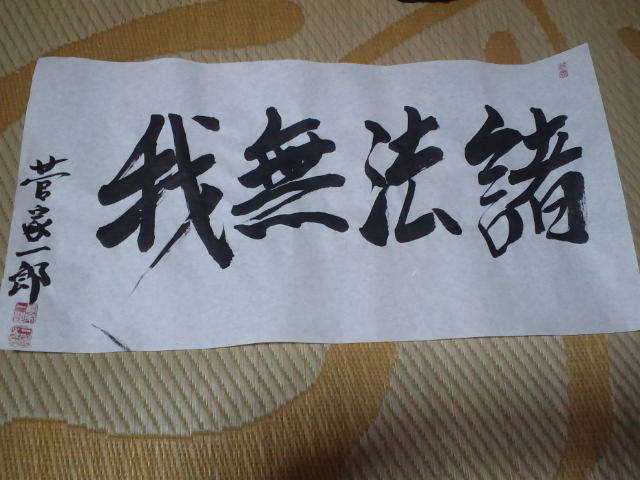 諸法無我
菅家一郎